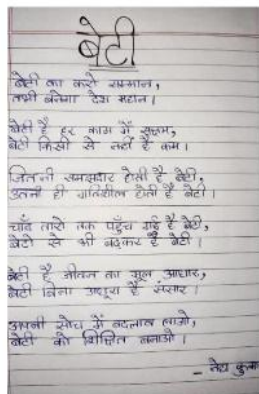 बेटी
बेटी का करो सम्मान,
तभी बनेगा देश महान।
बेटी है हर काम में सक्षम,
बेटी किसी से नहीं है कम।
जितनी समझदार होती है बेटी,
उतनी ही गतिशील होती है बेटी।
चाँद तारों तक पहुँच गई है बेटी,
बेटों से भी बढ़कर है बेटी।
बेटी है जीवन का मूल आधार,
बेटी बिना अधूरा है संसार।
अपनी सोच में बदलाव लाओ,
बेटी को शिक्षित बनाओ।
- नेहा